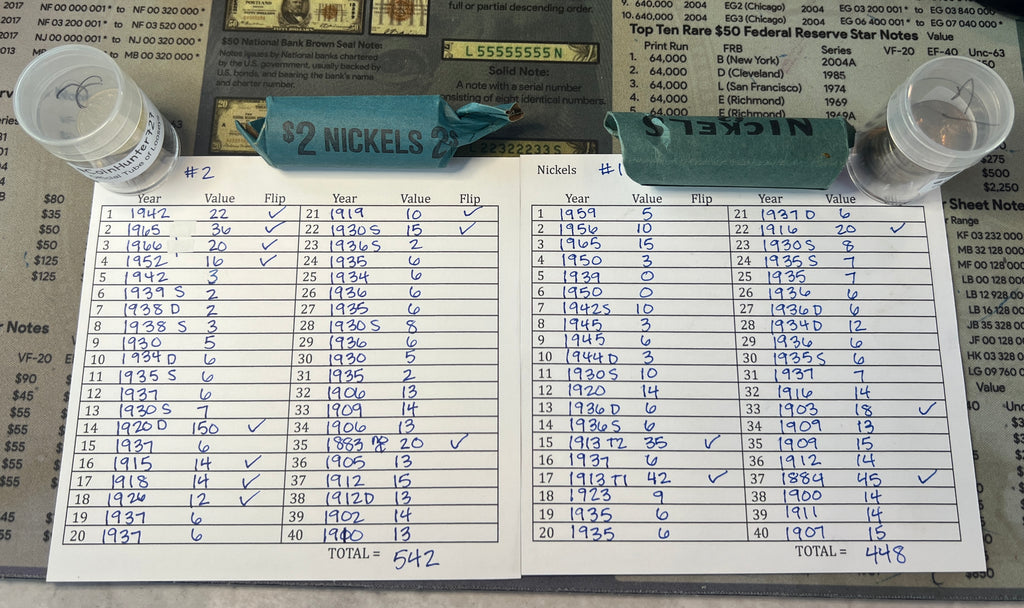 2017
NF 00 001 001* to NF 00 320 000*
NF 03 200 001* to NF 03 520 000*
NJ 00 000 001* to NJ 00 320 000*
to MB 00 320 000*
PORTLAND
$50 National Bank Brown Seal Note:
Notes issued by National banks chartered
by the U.S. government, usually backed by
U.S. bonds, and bearing the bank's name
and charter number.
full or partial descending order.
L 55555555 N
Solid Note:
A note with a serial number
consisting of eight identical numbers.
L 22322233 S
9. 640,000 2004 EG2 (Chicago) 2004 EG 03 200 001* to EG 03 840 000*
10. 640,000 EG3 (Chicago) 2004 EG 06 400 001* to EG 07 040 000*
Top Ten Rare $50 Federal Reserve Star Notes Value
Print Run FRB Series VF-20 EF-40 Unc-63
1. 64,000 B (New York) 2004A
2. 64,000 D (Cleveland) 1985
3. 64,000 L (San Francisco) 1974
4. 64,000 E (Richmond) 1969
5. 64,000 E (Richmond) 1949A
CoinHunter727
Official Tube of Loose
$2 NICKELS 2$
NICKELS $
$80
$35
$50
$50
$125
$125
Notes
VF-20
$90
$45
$55
$55
$55
$55
$55
$275
$500
$2,250
Sheet Note
Range
KF 03 232 000
MB 32 128 000
MF 00 128 000
LB 00 128 000
LB 12 928 00
LB 16 128 00
JB 35 328 00
JF 00 128 00
HK 03 328 0
LG 09 760 0
Value
$850
#2
Year Value Flip Year Value Flip
1 1942 22 ✓ 21 1919 10 ✓
2 1965 36 ✓ 22 1930 S 15 ✓
3 1966 20 ✓ 23 1936 S 2
4 1952 16 ✓ 24 1935 6
5 1942 3 25 1934 6
6 1939 S 2 26 1936 6
7 1938 D 2 27 1935 6
8 1938 S 3 28 1930 S 8
9 1930 5 29 1936 6
10 1934 D 6 30 1930 5
11 1935 S 6 31 1935 2
12 1937 6 32 1906 13
13 1930 S 7 33 1909 14
14 1920 D 150 ✓ 34 1906 13
15 1937 6 35 1883 20 ✓
16 1915 14 ✓ 36 1905 13
17 1918 14 ✓ 37 1912 15
18 1926 12 ✓ 38 1912D 13
19 1937 6 39 1902 14
20 1937 6 40 1900 13
TOTAL = 542
Nickels #1
Year Value Flip Year Value
1 1959 5 21 1937 D 6
2 1956 10 22 1916 20 ✓
3 1965 15 23 1930 S 8
4 1950 3 24 1935 S 7
5 1939 0 25 1935 7
6 1950 0 26 1936 6
7 1942 S 10 27 1936 D 6
8 1945 3 28 1934 D 12
9 1945 6 29 1936 6
10 1944 D 3 30 1935 S 6
11 1930 S 10 31 1937 7
12 1920 14 32 1916 14
13 1936 D 6 33 1903 18 ✓
14 1936 S 6 34 1909 13
15 1913 T2 35 ✓ 35 1909 15
16 1937 6 36 1912 14
17 1913 T1 42 ✓ 37 1884 45 ✓
18 1923 9 38 1900 14
19 1935 6 39 1911 14
20 1935 6 40 1907 15
TOTAL = 448